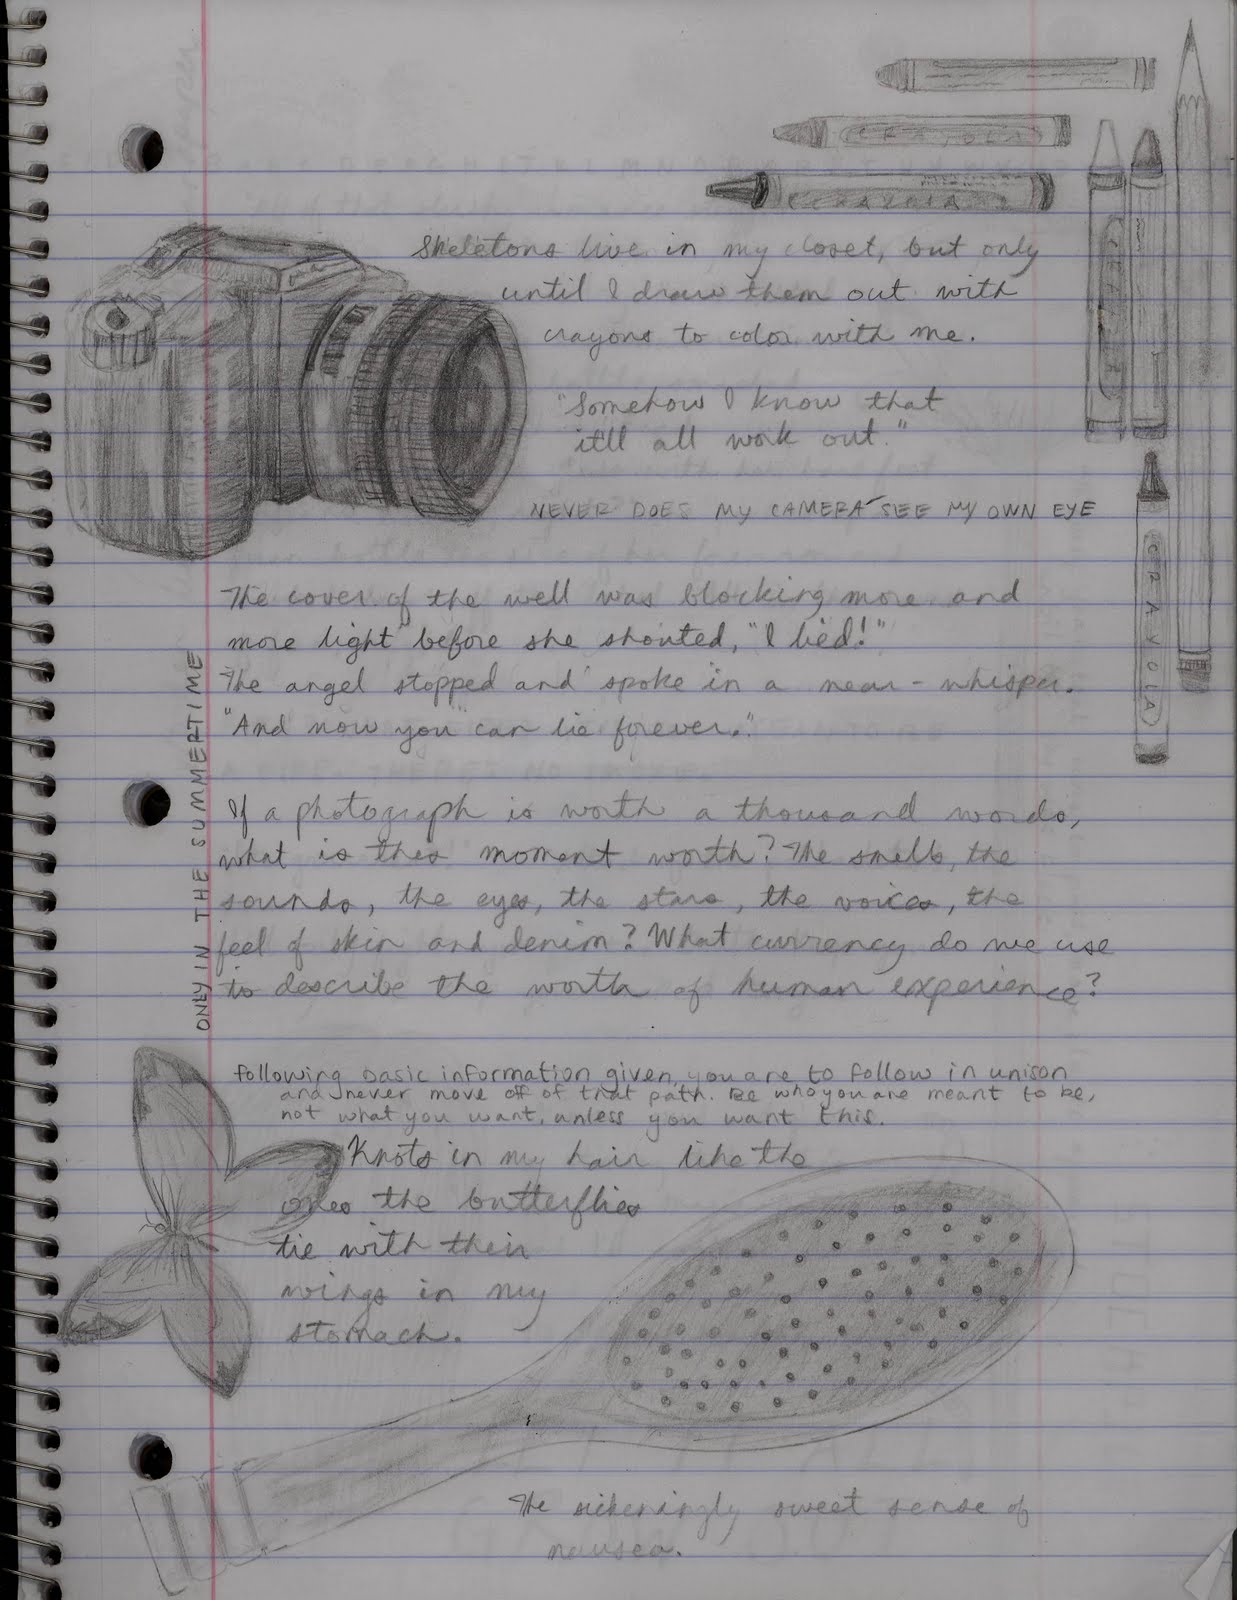 CRAYOLA
CRAYOLA
Skeletons live in my closet, but only
until I draw them out with
crayons to color with me.
"Somehow I know that
it'll all work out."
NEVER DOES MY CAMERA SEE MY OWN EYE
CRAYOLA
The cover of the well was blocking more and
more light before she shouted, "I lied!"
The angel stopped and spoke in a near-whisper.
"And now you can lie forever."
ONLY IN THE SUMMERTIME
If a photograph is worth a thousand words,
what is this moment worth? The smells, the
sounds, the eyes, the stars, the voices, the
feel of skin and denim? What currency do we use
to describe the worth of human experience?
Following basic information given, you are to follow in unison
and never move off of that path. Be who you are meant to be,
not what you want, unless you want this.
Knots in my hair like the
ones the butterflies
tie with their
wings in my
stomach.
The sickeningly sweet sense of
nausea.